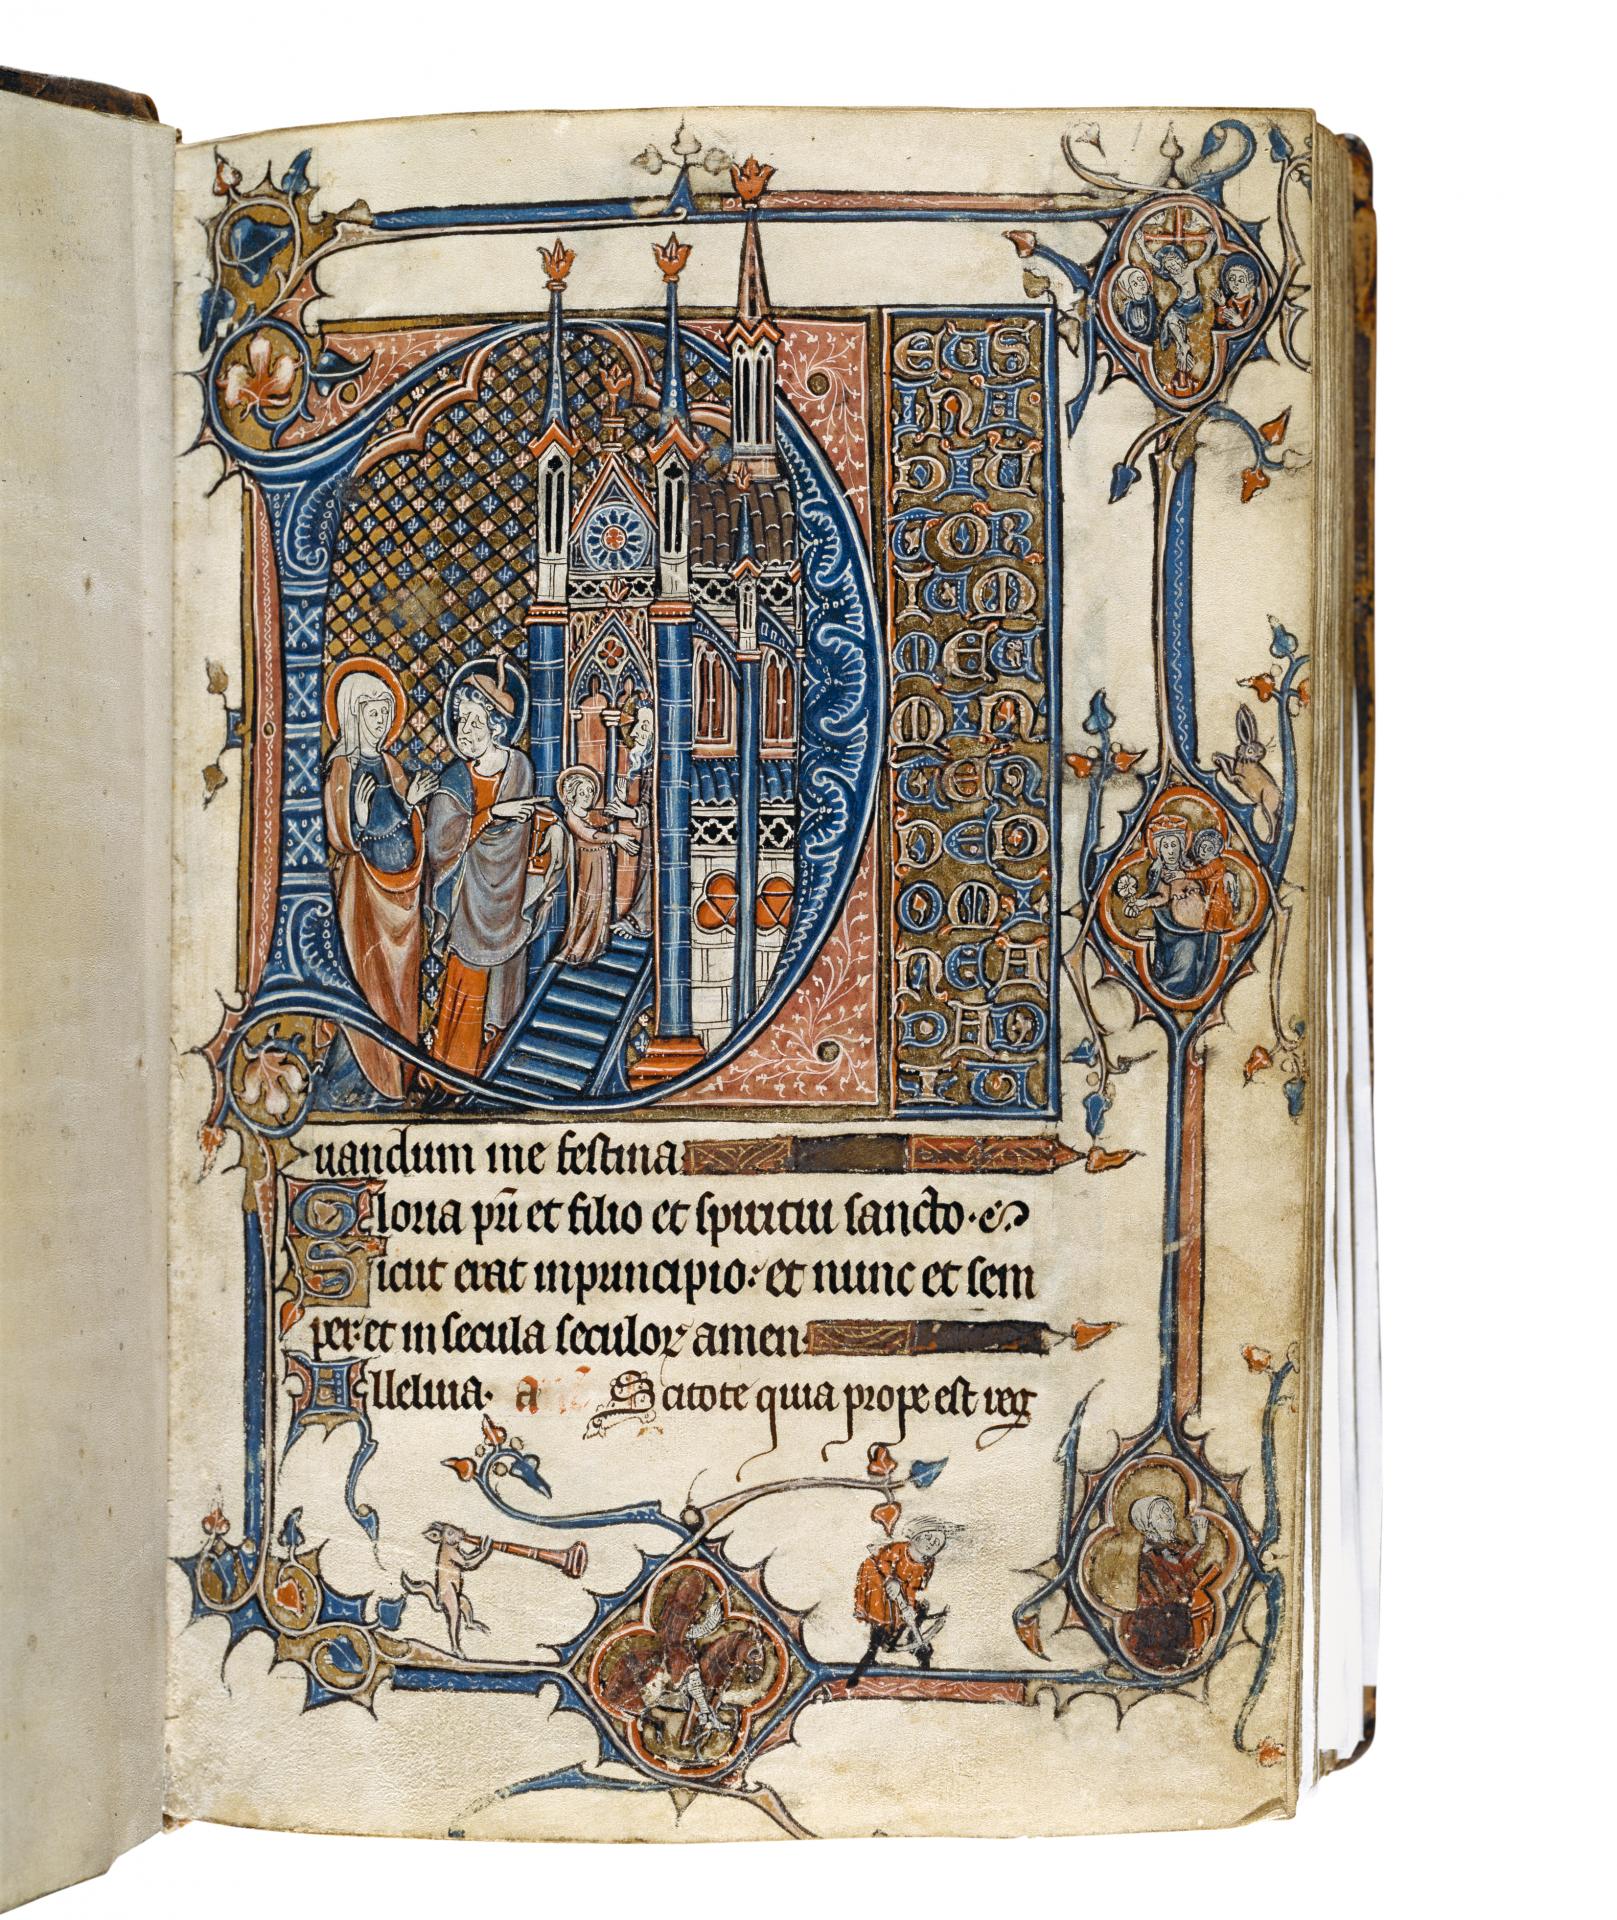 D
EUS
INA
DIU
TOR
IUM
MEU
MIN
TEN
DED
OMI
NEA
DAD
IU
uandum me festina
Gloria pr̄i et filio et spiritui sancto·
Sicut erat inprincipio: et nunc et sem
per: et in secula seculoꝝ amen·
Alleluia· a Scitote quia prope est reg